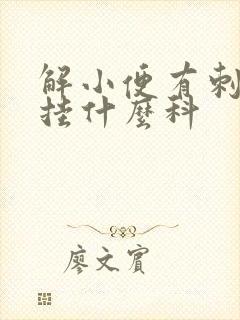 解小便有刺
挂什麼科
廖文賓